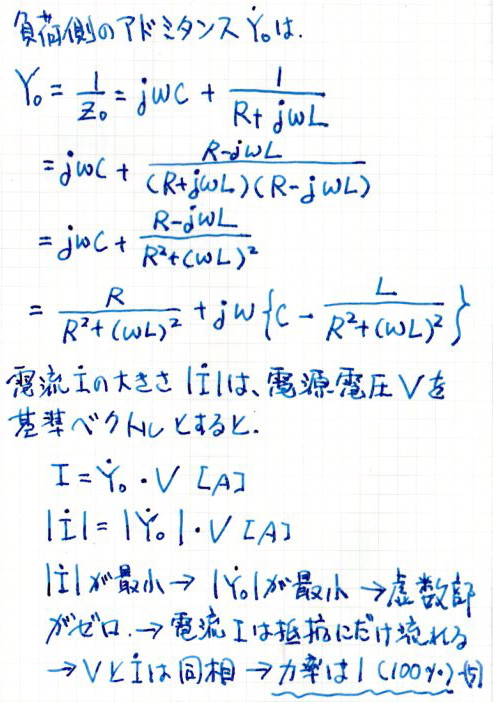 負荷側のアドミタンスẎ₀は.
Y₀ = 1/Z₀ = jωC + 1/(R + jωL)
= jωC + (R-jωL)/((R+jωL)(R-jωL))
= jωC + (R-jωL)/(R²+(ωL)²)
= R/(R²+(ωL)²) + jω{C - L/(R²+(ωL)²)}
電流İの大きさ|İ|は、電源電圧Vを
基準ベクトルとすると.
I = Ẏ₀・V [A]
|İ| = |Ẏ₀|・V [A]
|İ|が最小→ |Ẏ₀|が最小 →虚数部
がゼロ.→ 電流Iは抵抗にだけ流れる
→VとİI は同相 →力率は1 (100%)